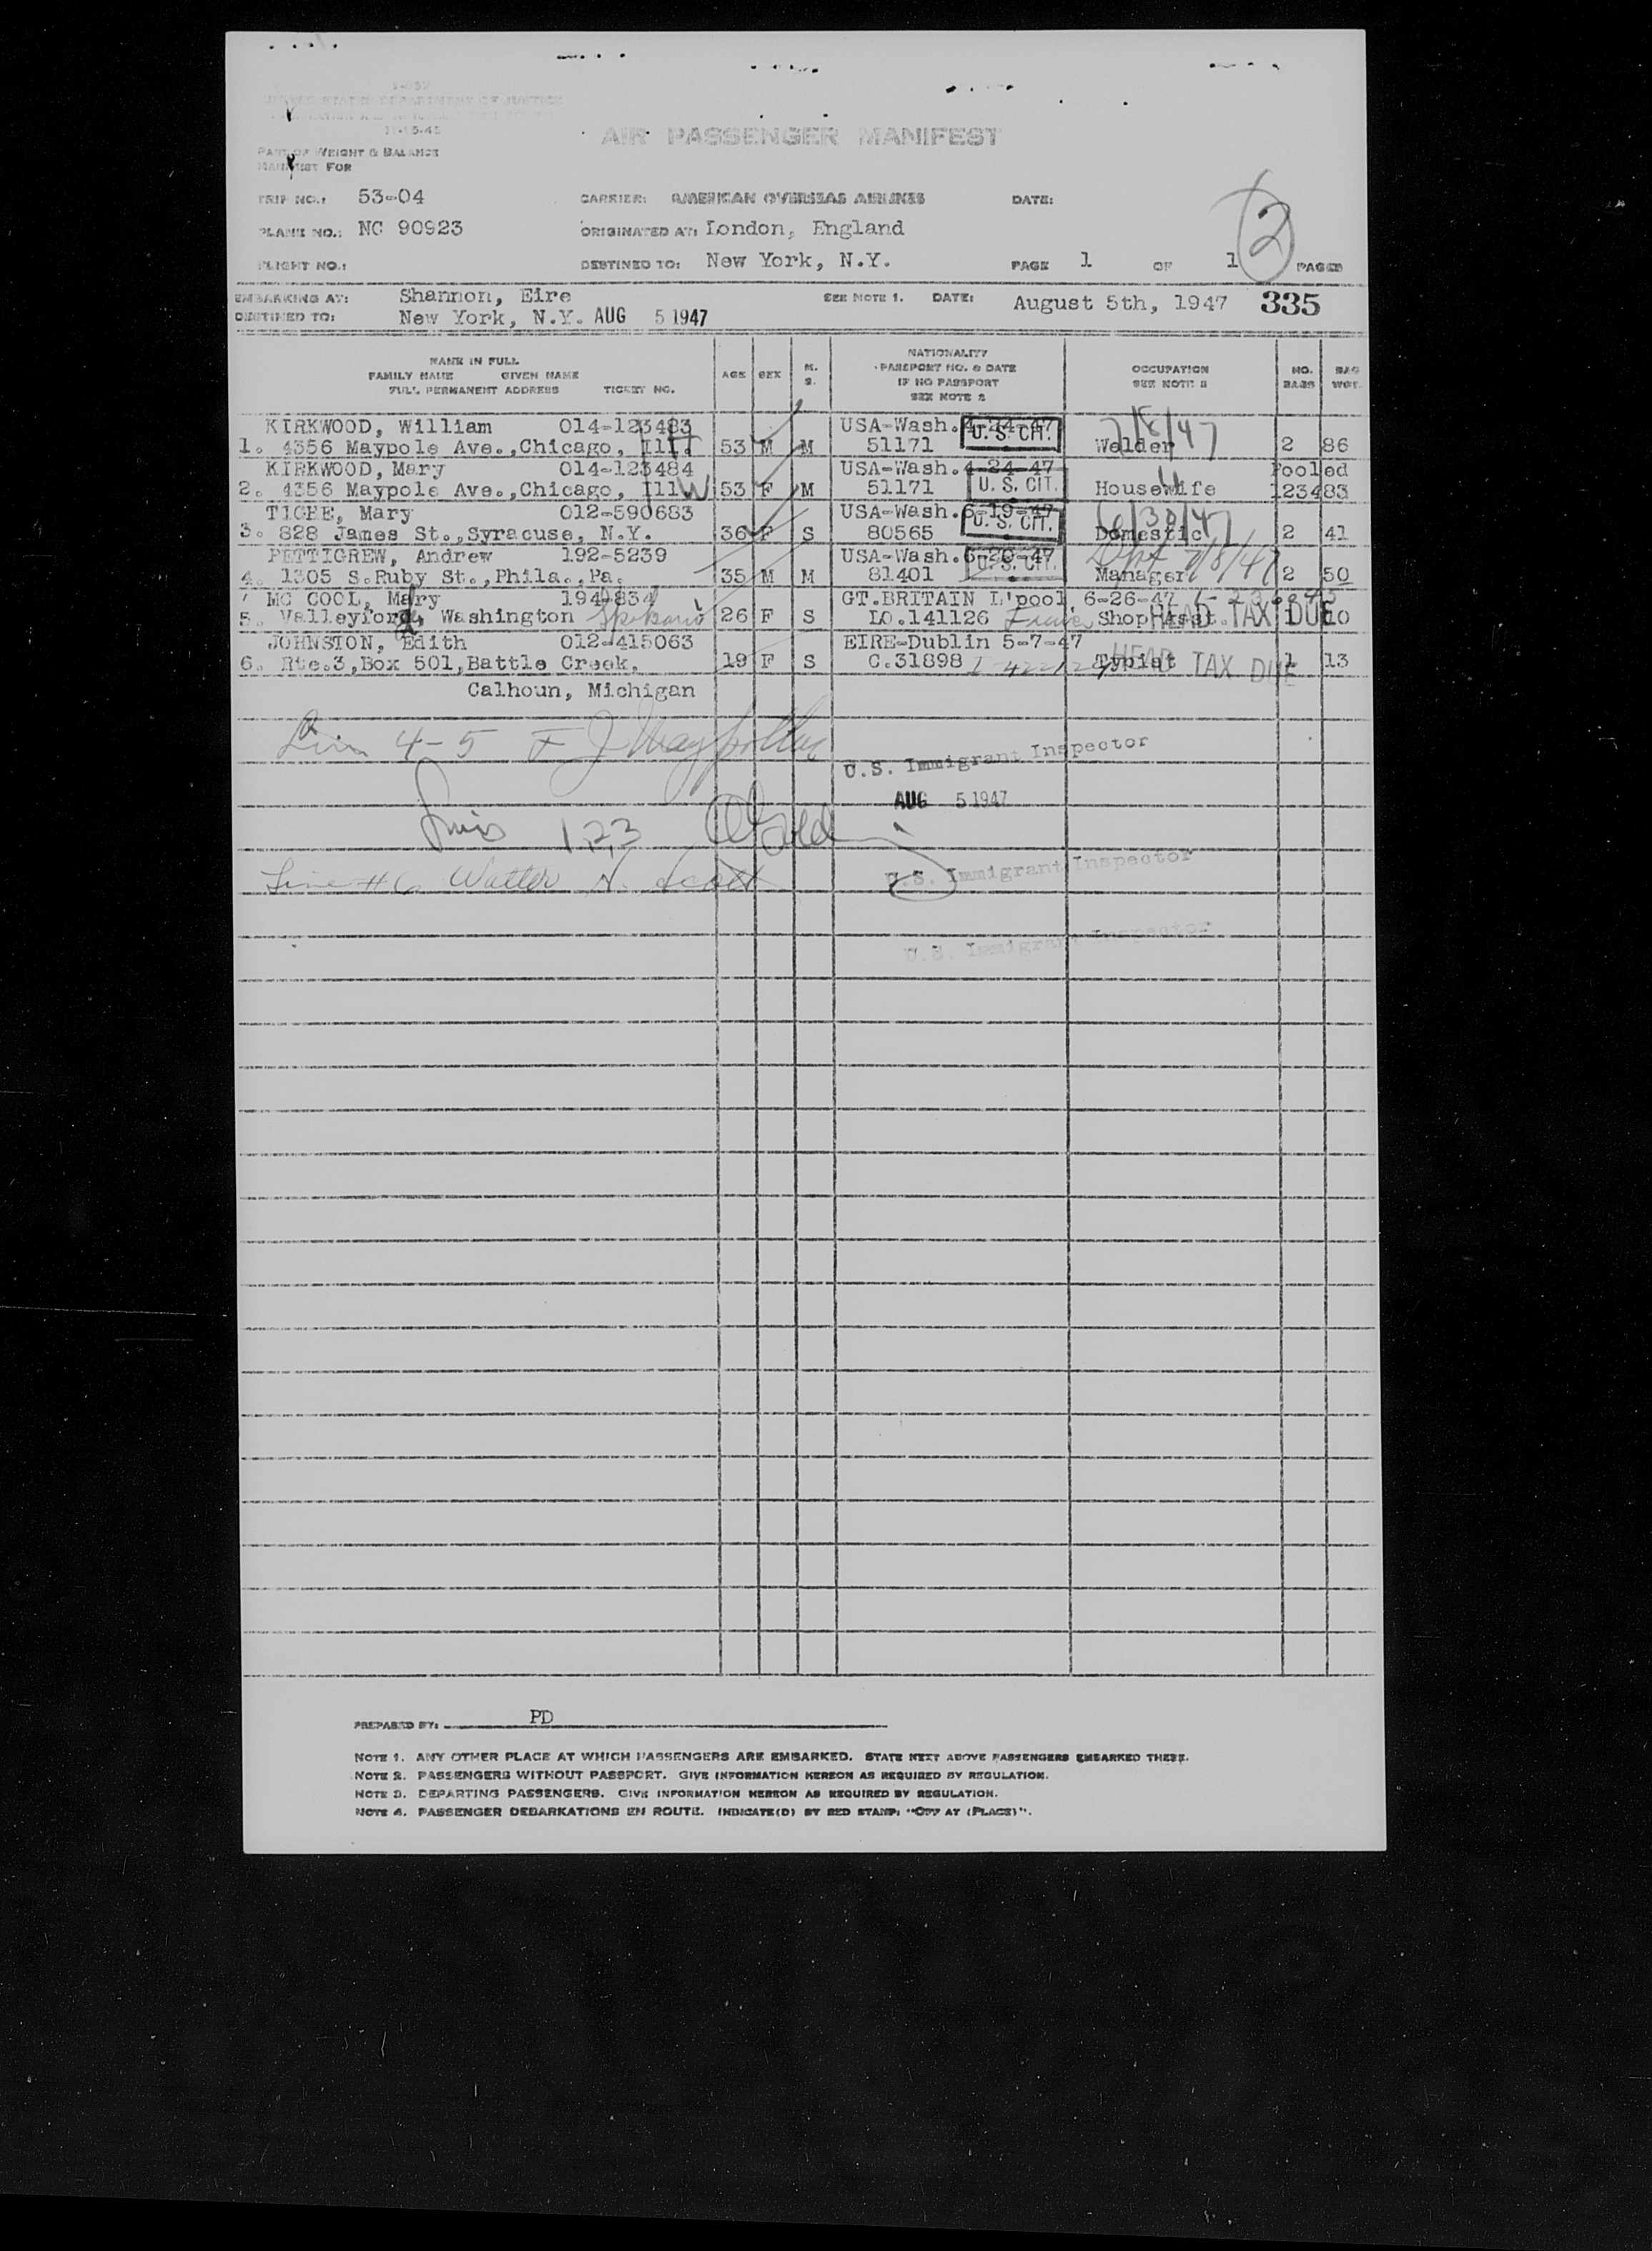 UNITED STATES DEPARTMENT OF JUSTICE
11-15-45
AIR PASSENGER MANIFEST
PART OF WEIGHT & BALANCE
MANIFEST FOR
TRIP NO.: 53-04 CARRIER: AMERICAN OVERSEAS AIRLINES DATE:
PLANE NO.: NC 90923 ORIGINATED AT: London, England 2
FLIGHT NO.: DESTINED TO: New York, N.Y. PAGE 1 OF 1 PAGES
EMBARKING AT: Shannon, Eire SEE NOTE 1. DATE: August 5th, 1947 335
DESTINED TO: New York, N.Y. AUG 5 1947
NAME IN FULL NATIONALITY
FAMILY NAME GIVEN NAME AGE SEX M. S. PASSPORT NO. & DATE OCCUPATION NO. BAGS BAG WGT.
FULL PERMANENT ADDRESS TICKET NO. IF NO PASSPORT SEE NOTE 2
SEE NOTE 2
KIRKWOOD, William 014-123483 USA-Wash. 4-24-47 U. S. CIT. 7/8/47
1. 4356 Maypole Ave.,Chicago, Ill. H 53 M M 51171 Welder 2 86
KIRKWOOD, Mary 014-123484 USA-Wash. 4-24-47 Pooled
2. 4356 Maypole Ave.,Chicago, Ill W 53 F M 51171 U. S. CIT. Housewife 123483
TIGHE, Mary 012-590683 USA-Wash. 6-19-47 U. S. CIT. 6/30/47
3. 828 James St.,Syracuse, N.Y. 36 F S 80565 Domestic 2 41
PETTIGREW, Andrew 192-5239 USA-Wash. 6-20-47 U. S. CIT. 7/8/47
4. 1305 S.Ruby St.,Phila.,Pa. 35 M M 81401 Manager 2 50
MC COOL, Mary GT.BRITAIN L'pool, 6-26-47
5. Valleyford, Washington Spokane 26 F S LO.141126 Shop Asst. HEAD TAX DUE
JOHNSTON, Edith 012-415063 EIRE-Dublin 5-7-47
6. Rte.3,Box 501,Battle Creek, 19 F S C.31898 Typist HEAD TAX DUE 1 13
Calhoun, Michigan
4-5 F J
U.S. Immigrant Inspector
AUG 5 1947
Lines 1,2,3
Line #6 Walter N. Scott U.S. Immigrant Inspector
U.S. Immigrant Inspector
PREPARED BY: PD
NOTE 1. ANY OTHER PLACE AT WHICH PASSENGERS ARE EMBARKED. STATE NEXT ABOVE PASSENGERS EMBARKED THERE.
NOTE 2. PASSENGERS WITHOUT PASSPORT. GIVE INFORMATION HEREON AS REQUIRED BY REGULATION.
NOTE 3. DEPARTING PASSENGERS. GIVE INFORMATION HEREON AS REQUIRED BY REGULATION.
NOTE 4. PASSENGER DEBARKATIONS EN ROUTE. INDICATE(D) BY RED STAMP: "OFF AT (PLACE)".